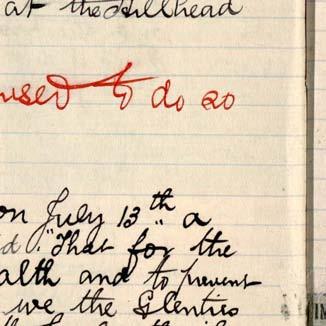 at the Hillhead
used to do so
on July 13th a
"That for the
alth and to prevent
we the Glenties